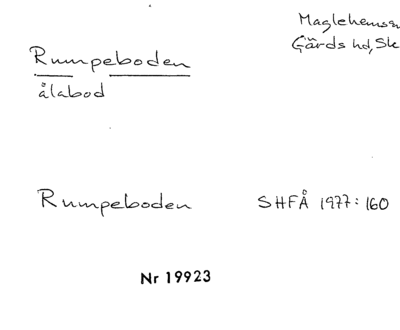 Maglehems
Gärds hd, Sk
Rumpeboden
ålabod
Rumpeboden SHFÅ 1977:160
Nr 19923